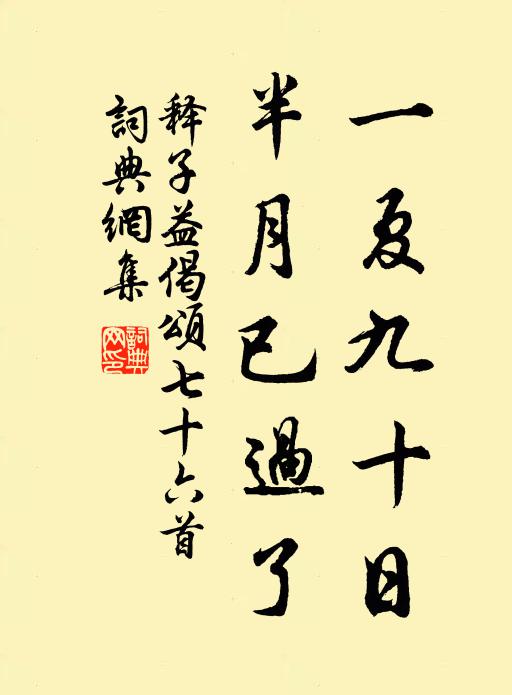 一夏九十日
半月已過了
释子益偈頌七十六首
詞典網集
詞典網印